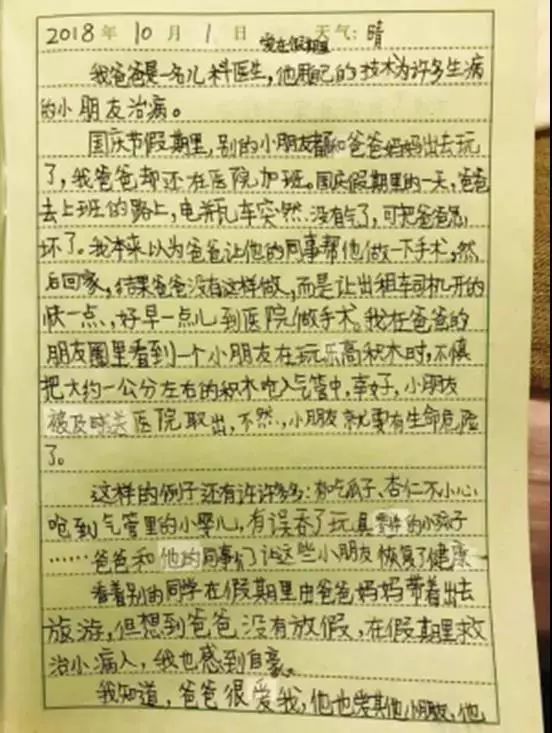 2018年10月1日 天气:晴
爱在假期里
我爸爸是一名儿科医生,他用自己的技术为许多生病
的小朋友治病。
国庆节假期里,别的小朋友都和爸爸妈妈出去玩
了,我爸爸却还在医院加班。国庆假期里的一天,爸爸
去上班的路上,电瓶车突然没有气了,可把爸爸急
坏了。我本来以为爸爸让他的同事帮他做一下手术,然
后回家,结果爸爸没有这样做,而是让出租车司机开的
快一点、好早一点儿到医院做手术。我在爸爸的
朋友圈里看到一个小朋友在玩乐高积木时,不慎
把大约一公分左右的积木呛入气管中,幸好,小朋友
被及时送医院取出,不然,小朋友就要有生命危险
了。
这样的例子还有许许多多:有吃瓜子、杏仁不小心
呛到气管里的小婴儿,有误吞了玩具零件的小孩子
……爸爸和他的同事们让这些小朋友恢复了健康
看着别的同学在假期里由爸爸妈妈带着出去
旅游,但想到爸爸没有放假,在假期里救
治小病人,我也感到自豪。
我知道,爸爸很爱我,他也爱其他小朋友,他